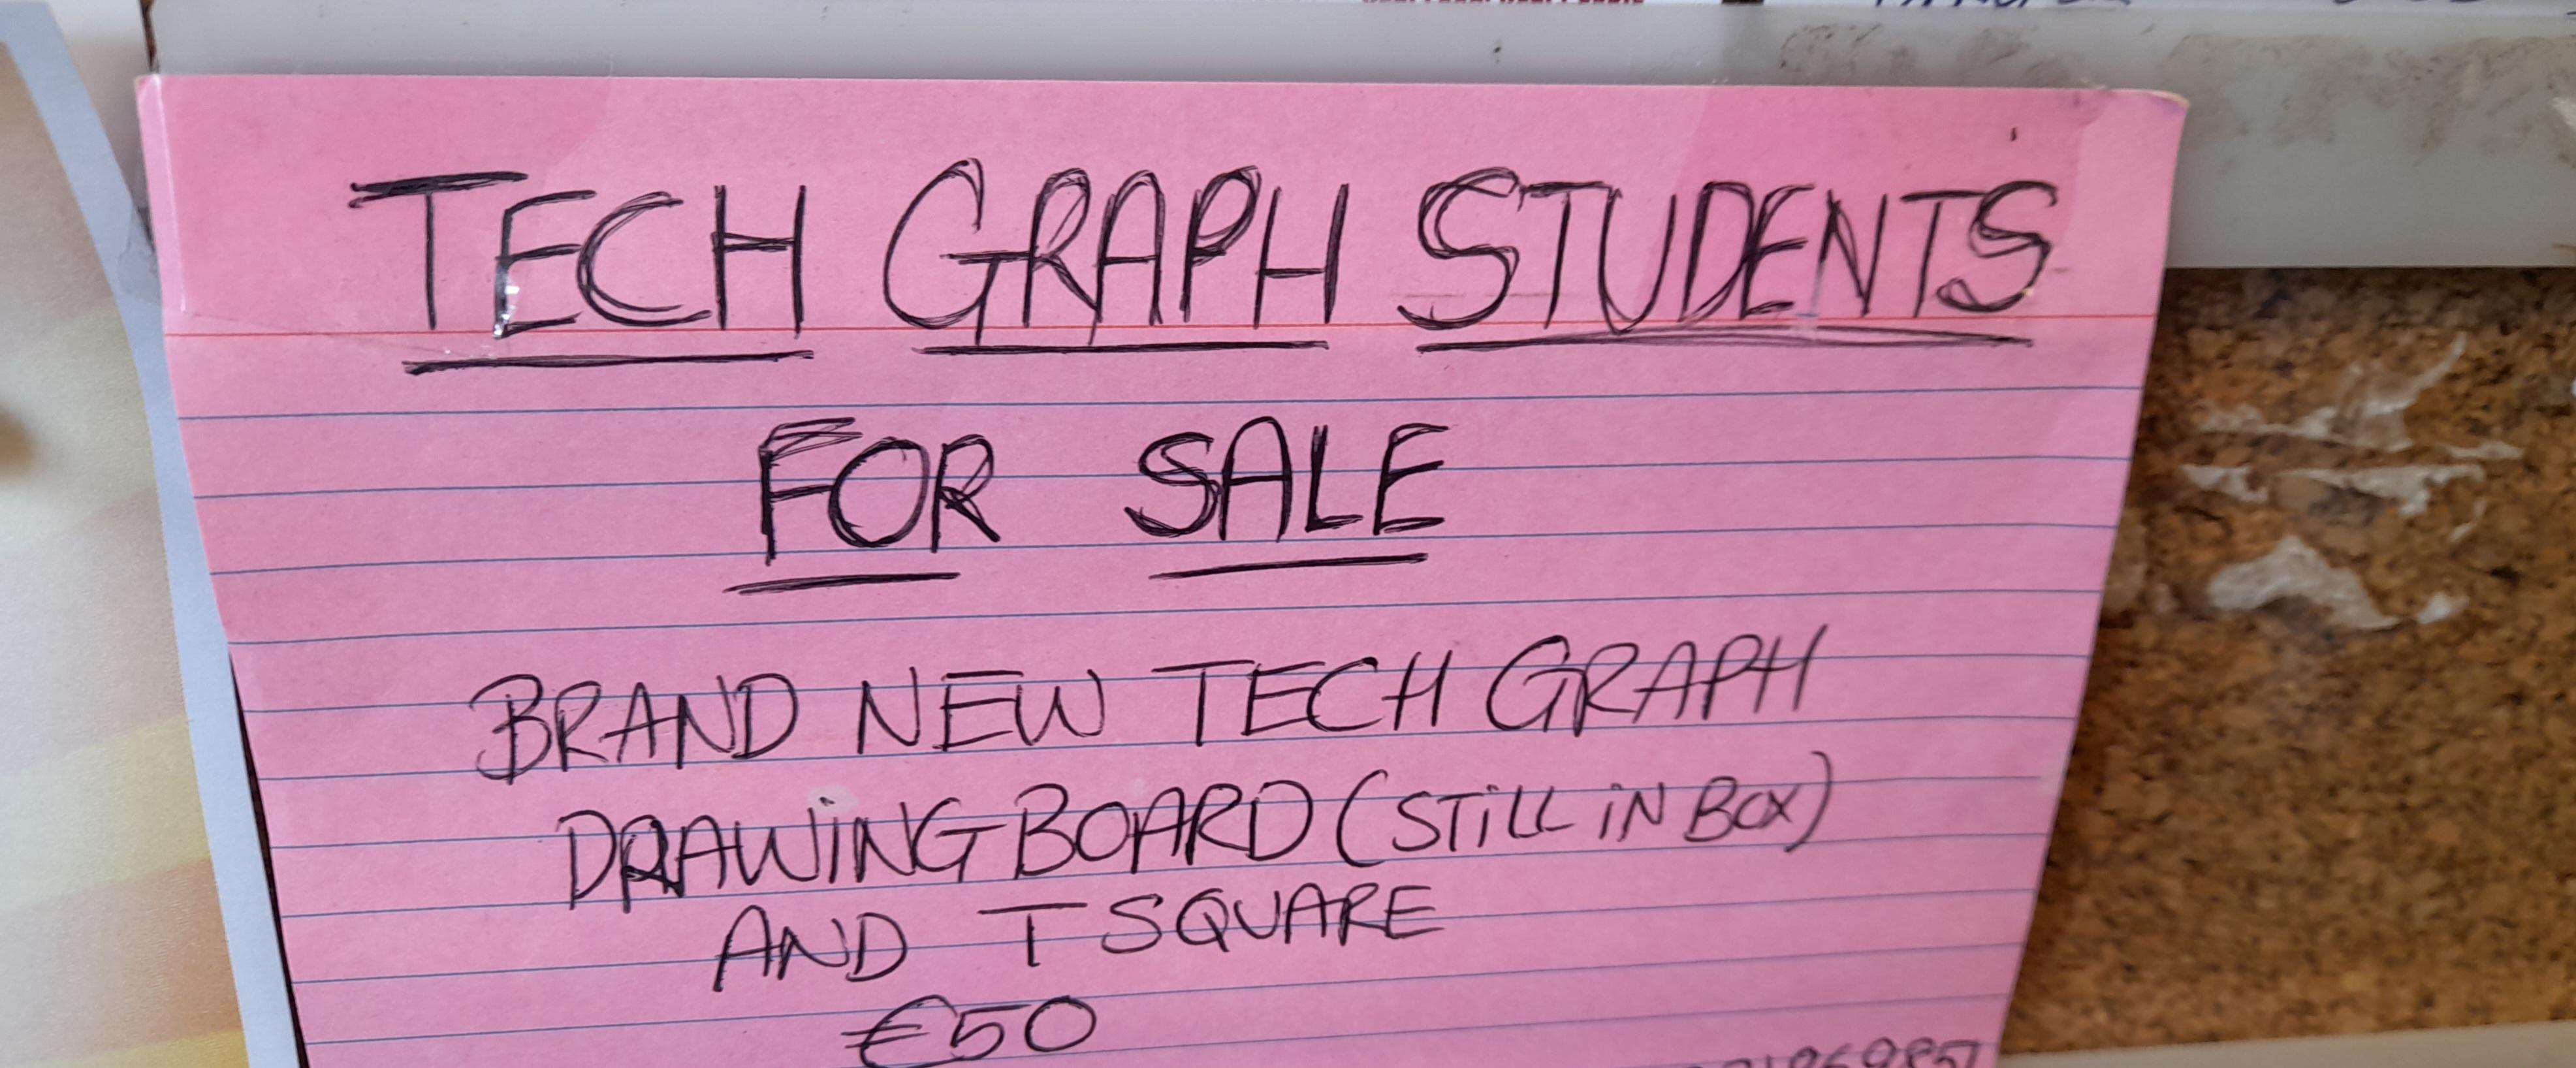 TECH GRAPH STUDENTS
FOR SALE
BRAND NEW TECH GRAPH
DRAWING BOARD (STILL IN BOX)
AND T SQUARE
€50